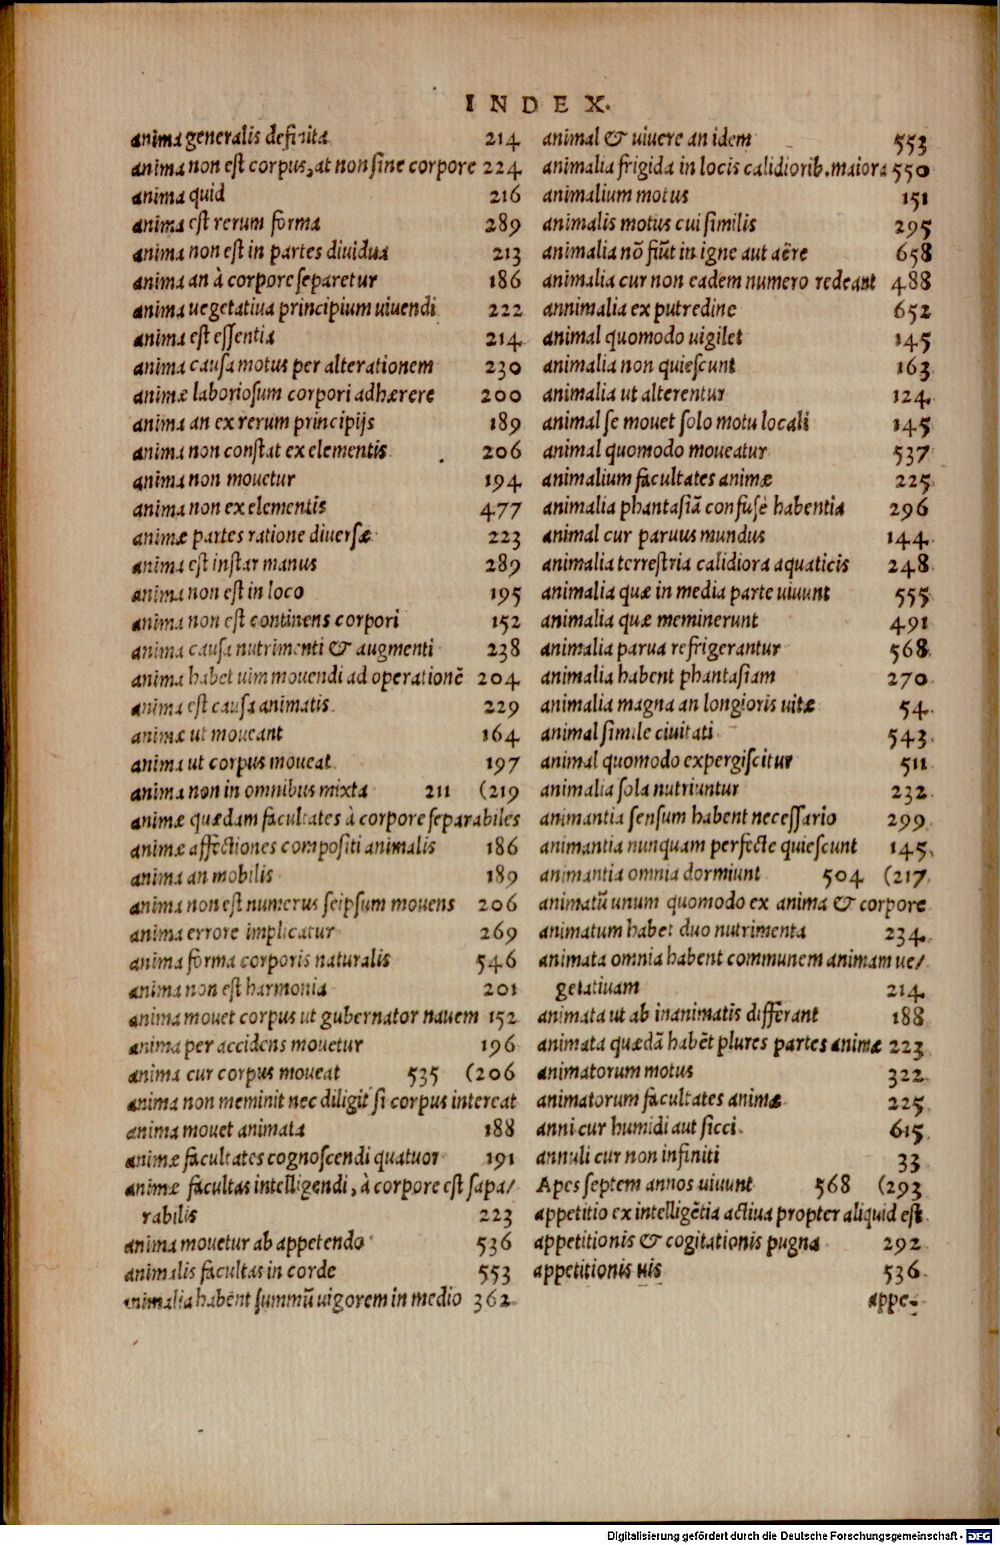 INDEX.
anima generalis definita 214
anima non est corpus, at non sine corpore 224
anima quid 216
anima est rerum forma 289
anima non est in partes diuidua 213
anima an à corpore separetur 186
anima uegetatiua principium uiuendi 222
anima est essentia 214
anima causa motus per alterationem 230
animæ laboriosum corpori adhærere 200
anima an ex rerum principijs 189
anima non constat ex elementis 206
anima non mouetur 194
anima non ex elementis 477
animæ partes ratione diuersæ 223
anima est instar manus 289
anima non est in loco 195
anima non est continens corpori 152
anima causa nutrimenti & augmenti 238
anima habet uim mouendi ad operationẽ 204
anima est causa animatis 229
animæ ut moueant 164
anima ut corpus moueat 197
anima non in omnibus mixta 211 (219
animæ quædam facultates à corpore separabiles
animæ affectiones compositi animalis 186
anima an mobilis 189
anima non est numerus seipsum mouens 206
anima errore implicatur 269
anima forma corporis naturalis 546
anima non est harmonia 201
anima mouet corpus ut gubernator nauem 152
anima per accidens mouetur 196
anima cur corpus moueat 535 (206
anima non meminit nec diligit si corpus intereat
anima mouet animata 188
animæ facultates cognoscendi quatuor 191
animæ facultas intelligendi, à corpore est sapa/
rabilis 223
anima mouetur ab appetendo 536
animalis facultas in corde 553
animalia habent summũ uigorem in medio 362
animal & uiuere an idem 553
animalia frigida in locis calidiorib. maiora 550
animalium motus 151
animalis motus cui similis 295
animalia nõ fiũt in igne aut aëre 658
animalia cur non eadem numero redeant 488
annimalia ex putredine 652
animal quomodo uigilet 145
animalia non quiescunt 163
animalia ut alterentur 124
animal se mouet solo motu locali 145
animal quomodo moueatur 537
animalium facultates animæ 225
animalia phantasiã confusè habentia 296
animal cur paruus mundus 144
animalia terrestria calidiora aquaticis 248
animalia quæ in media parte uiuunt 555
animalia quæ meminerunt 491
animalia parua refrigerantur 568
animalia habent phantasiam 270
animalia magna an longioris uitæ 54
animal simile ciuitati 543
animal quomodo expergiscitur 511
animalia sola nutriuntur 232
animantia sensum habent necessario 299
animantia nunquam perfecte quiescunt 145
animantia omnia dormiunt 504 (217
animatũ unum quomodo ex anima & corpore
animatum habet duo nutrimenta 234
animata omnia habent communem animam ue/
getatiuam 214
animata ut ab inanimatis differant 188
animata quædã habẽt plures partes animæ 223
animatorum motus 322
animatorum facultates animæ 225
anni cur humidi aut sicci 615
annuli cur non infiniti 33
Apes septem annos uiuunt 568 (293
appetitio ex intelligẽtia actiua propter aliquid est
appetitionis & cogitationis pugna 292
appetitionis uis 536
appe-
Digitalisierung gefördert durch die Deutsche Forschungsgemeinschaft - DFG